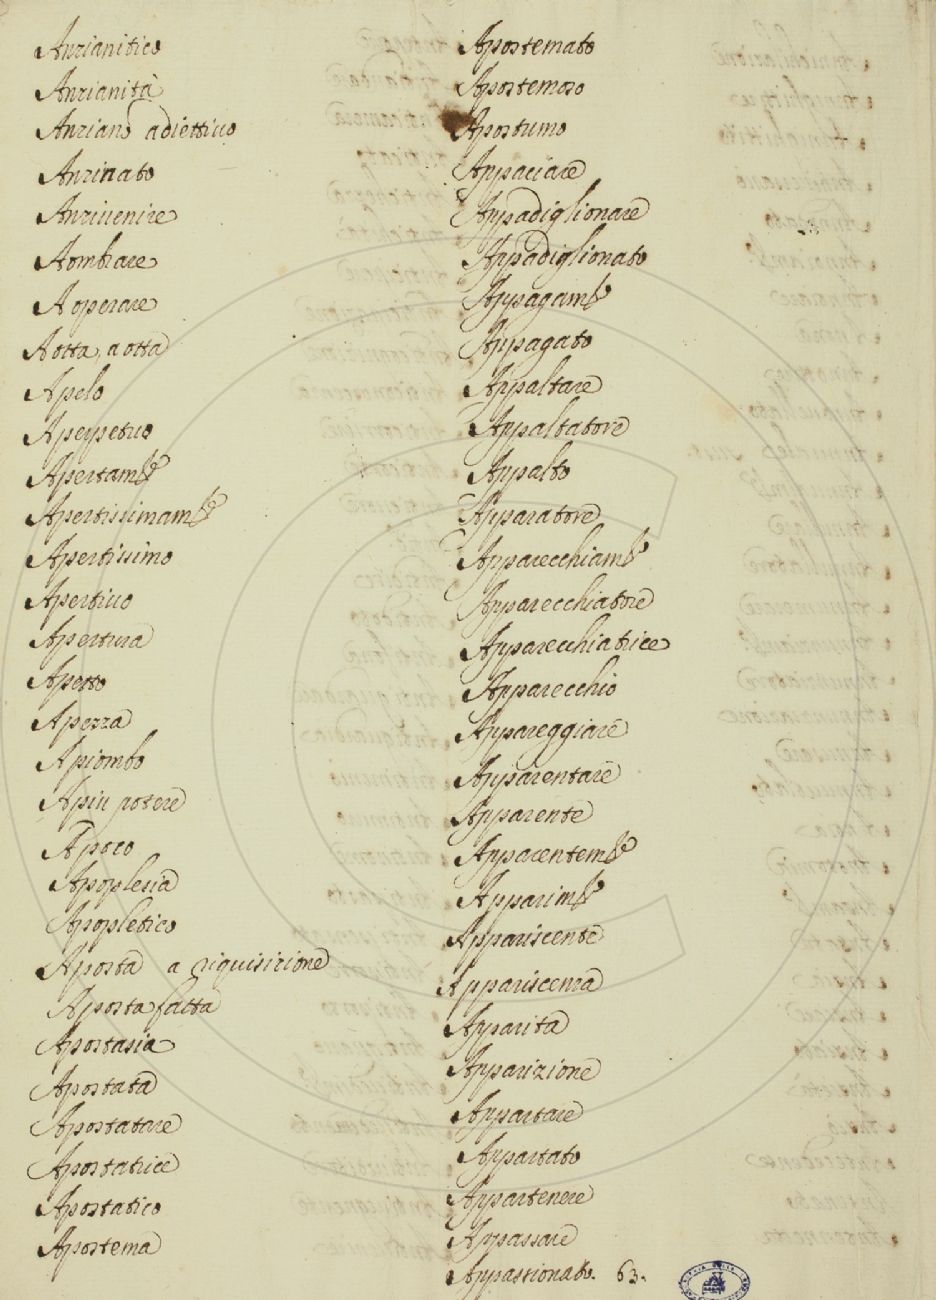 Anzianitico
Anzianità
Anziano adiettivo
Anzinato
Anzivenire
Aombrare
A operare
A otta, a otta
Apelo
Aperpetuo
Apertam.te
Apertissimam.te
Apertissimo
Apertivo
Apertura
Apetto
Apezza
Apiombo
Apiu potere
Apoco
Apoplesia
Apopletico
Aposta a riquisizione
Aposta fatta
Apostasia
Apostata
Apostatare
Apostatrice
Apostatico
Apostema
Apostemato
Apostemoso
Apostumo
Appaciare
Appadiglionare
Appadiglionato
Appagam.to
Appagato
Appaltare
Appaltatore
Appalto
Apparatore
Apparecchiam.to
Apparecchiatore
Apparecchiatrice
Apparecchio
Appareggiare
Apparentare
Apparente
Apparentem.te
Apparim.to
Appariscente
Appariscenza
Apparita
Apparizione
Appartare
Appartato
Appartenere
Appassare
Appassionato. 63.